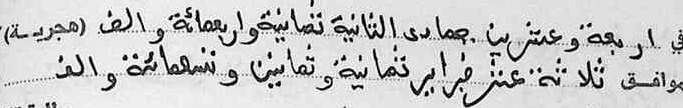 في اربعة وعشرين جمادى الثانية ثمانية واربعمائة والف (هجرية)
موافق ثلاثة عشر فبراير ثمانية وثمانين وتسعمائة والف